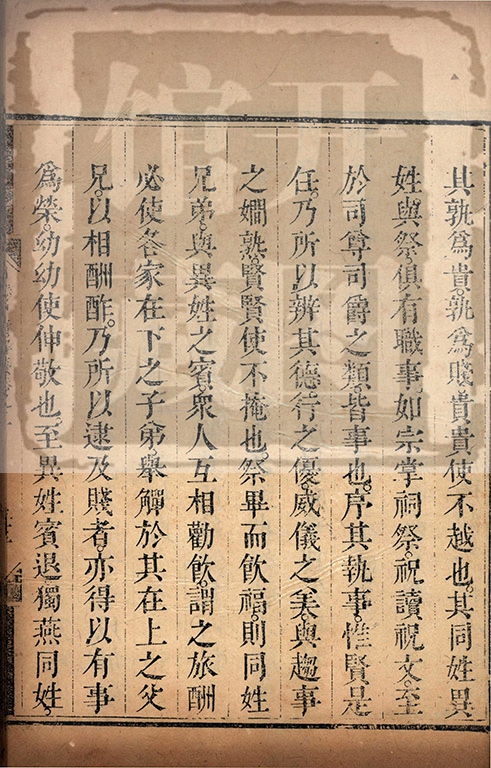 其孰爲貴孰爲賤貴貴使不越也其同姓異
姓與祭俱有職事如宗掌祠祭祝讀祝文至
於司尊司爵之類皆事也序其執事惟賢是
任乃所以辨其德行之優威儀之美與趨事
之嫺熟賢賢使不掩也祭畢而飲福則同姓
兄弟與異姓之賓衆人互相勸飲謂之旅酬
必使各家在下之子弟舉觶於其在上之父
兄以相酬酢乃所以逮及賤者亦得以有事
爲榮幼幼使伸敬也至異姓賓退獨燕同姓